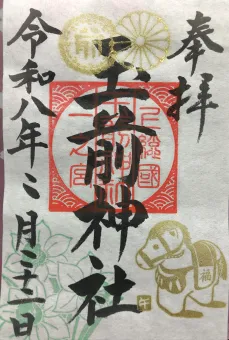 奉拝
上總國
玉前神社
一之宮
令和八年二月二十一日
前
福
午